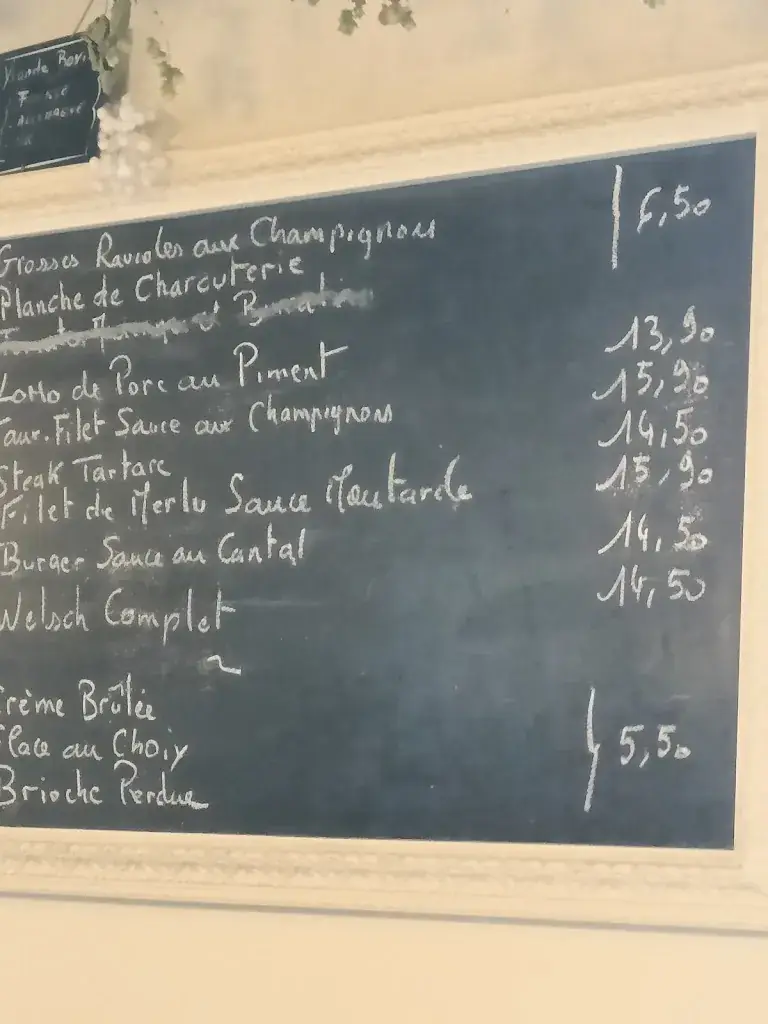 Viande Bovi
France
Allemagne
Grosses Ravioles aux Champignons
6,50
Planche de Charcuterie
Lotto de Porc au Piment 13,90
Faux.Filet Sauce aux Champignons 15,90
Steak Tartare 14,50
Filet de Merlu Sauce Moutarde 15,90
Burger Sauce au Cantal 14,50
Welsch Complet 14,50
~
Crème Brûlée
Glace au Choix 5,50
Brioche Perdue